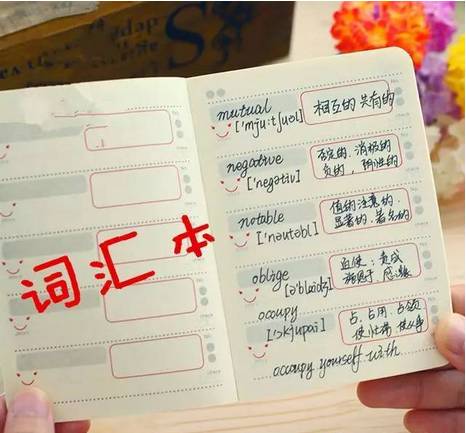 词汇本
mutual
['mju:tʃuəl]
相互的 共有的
negative
['negətiv]
否定的、消极的
负的，阴性的
notable
['nəutəbl]
值的注意的
显著的、著名的
oblige
[ə'blaidʒ]
occupy
['ɔkjupai]
占、占用、占领
occupy yourself with